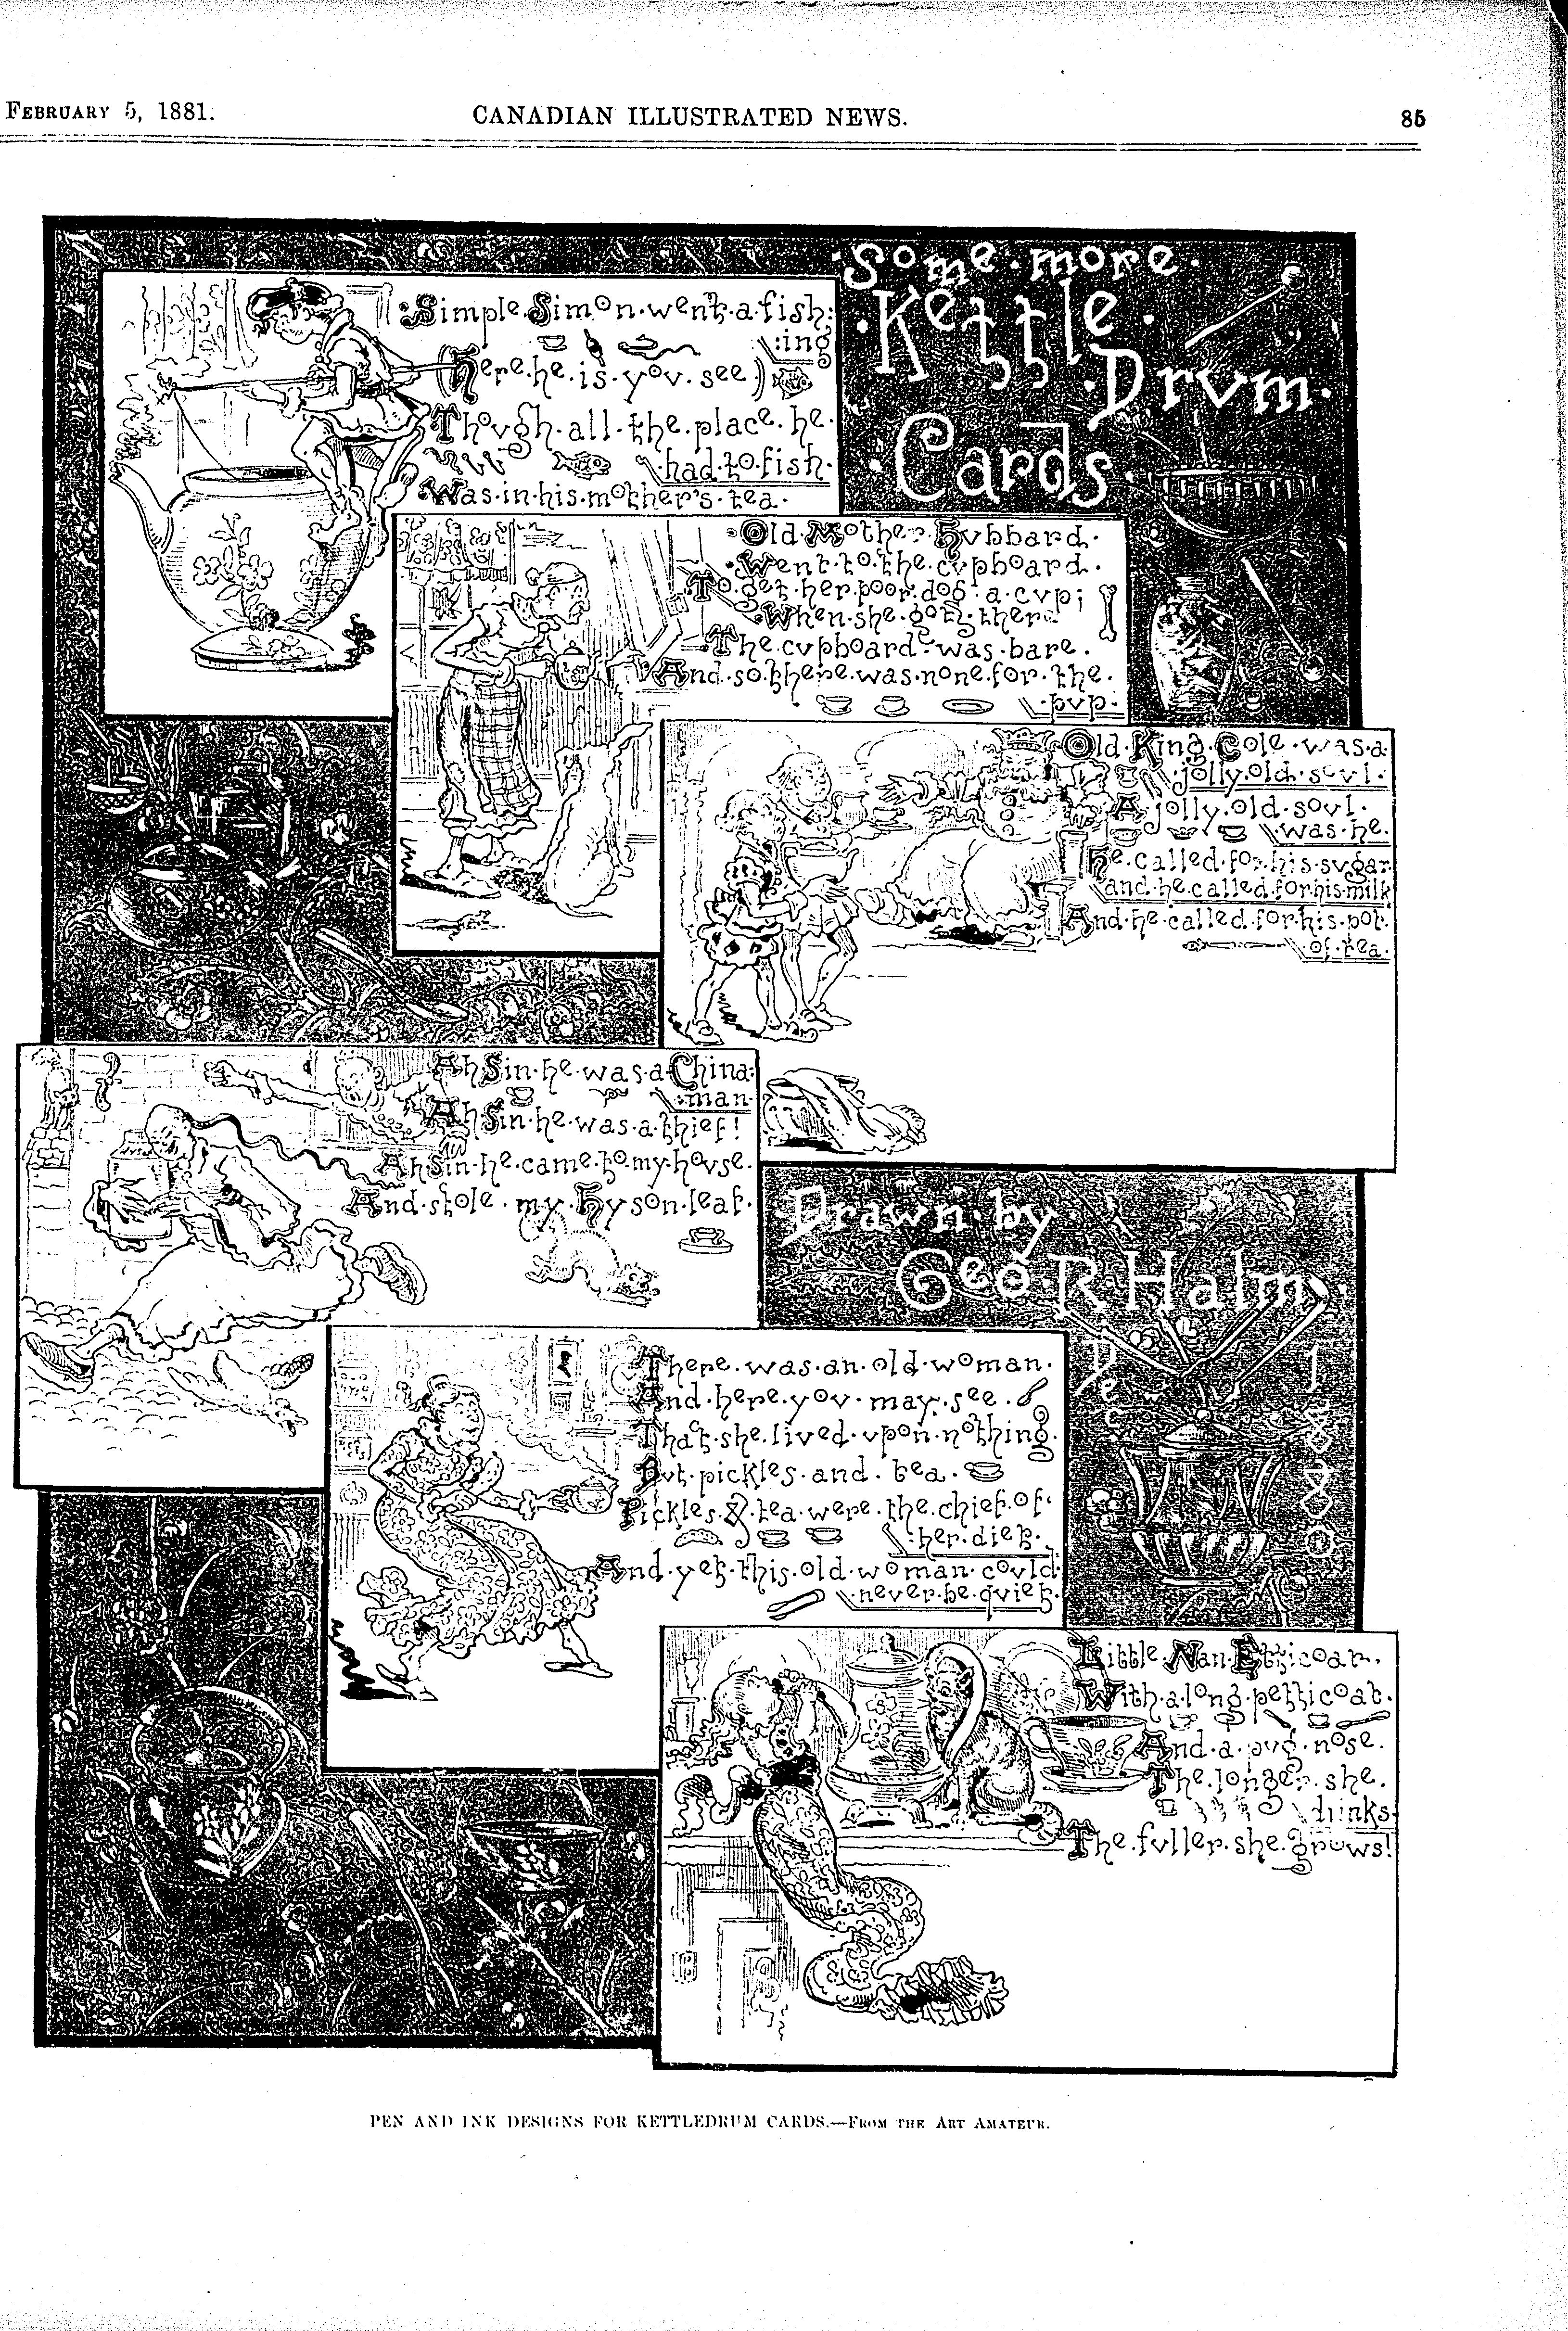 FEBRUARY 5, 1881.
CANADIAN ILLUSTRATED NEWS.
85
·Some·more·
·Kettle·
·Drvm·
·Cards·
:Simple·Simon·went·a·fish:
:ing
(Here·he·is·yov·see·)
Thovgh·all·the·place·he·
·had·to·fish·
·Was·in·his·mother's·tea·
·Old·Mother·Hvbbard·
·Went·to·the·cvpboard·
·To·get·her·poor·dog·a·cvp;
·When·she·got·there
·The·cvpboard·was·bare·
And·so·there·was·none·for·the·
·pvp·
Old·King·Cole·was·a·
·jolly·old·sovl·
A·jolly·old·sovl·
·was·he·
He·called·for·his·svgar
and·he·called·for·his·milk
And·he·called·for·his·pot·
·of·tea·
Ah Sin·he·was·a·China:
:man·
Ah Sin·he·was·a·thief!
Ah Sin·he·came·to·my·hovse·
And·stole·my·Hyson·leaf·
Drawn·by
Geo·R·Halm·
Dec
1880
There·was·an·old·woman·
And·here·yov·may·see·
That·she·lived·vpon·nothing·
Bvt·pickles·and·tea·
Pickles·&·tea·were·the·chief·of·
:her·diet·
And·yet·this·old·woman·covld·
·never·be·qviet·
Little·Nan·Etticoat·
With·a·long·petticoat·
And·a·pvg·nose·
The·longer·she·
·drinks·
The·fvller·she·grows!
PEN AND INK DESIGNS FOR KETTLEDRUM CARDS.—FROM THE ART AMATEUR.